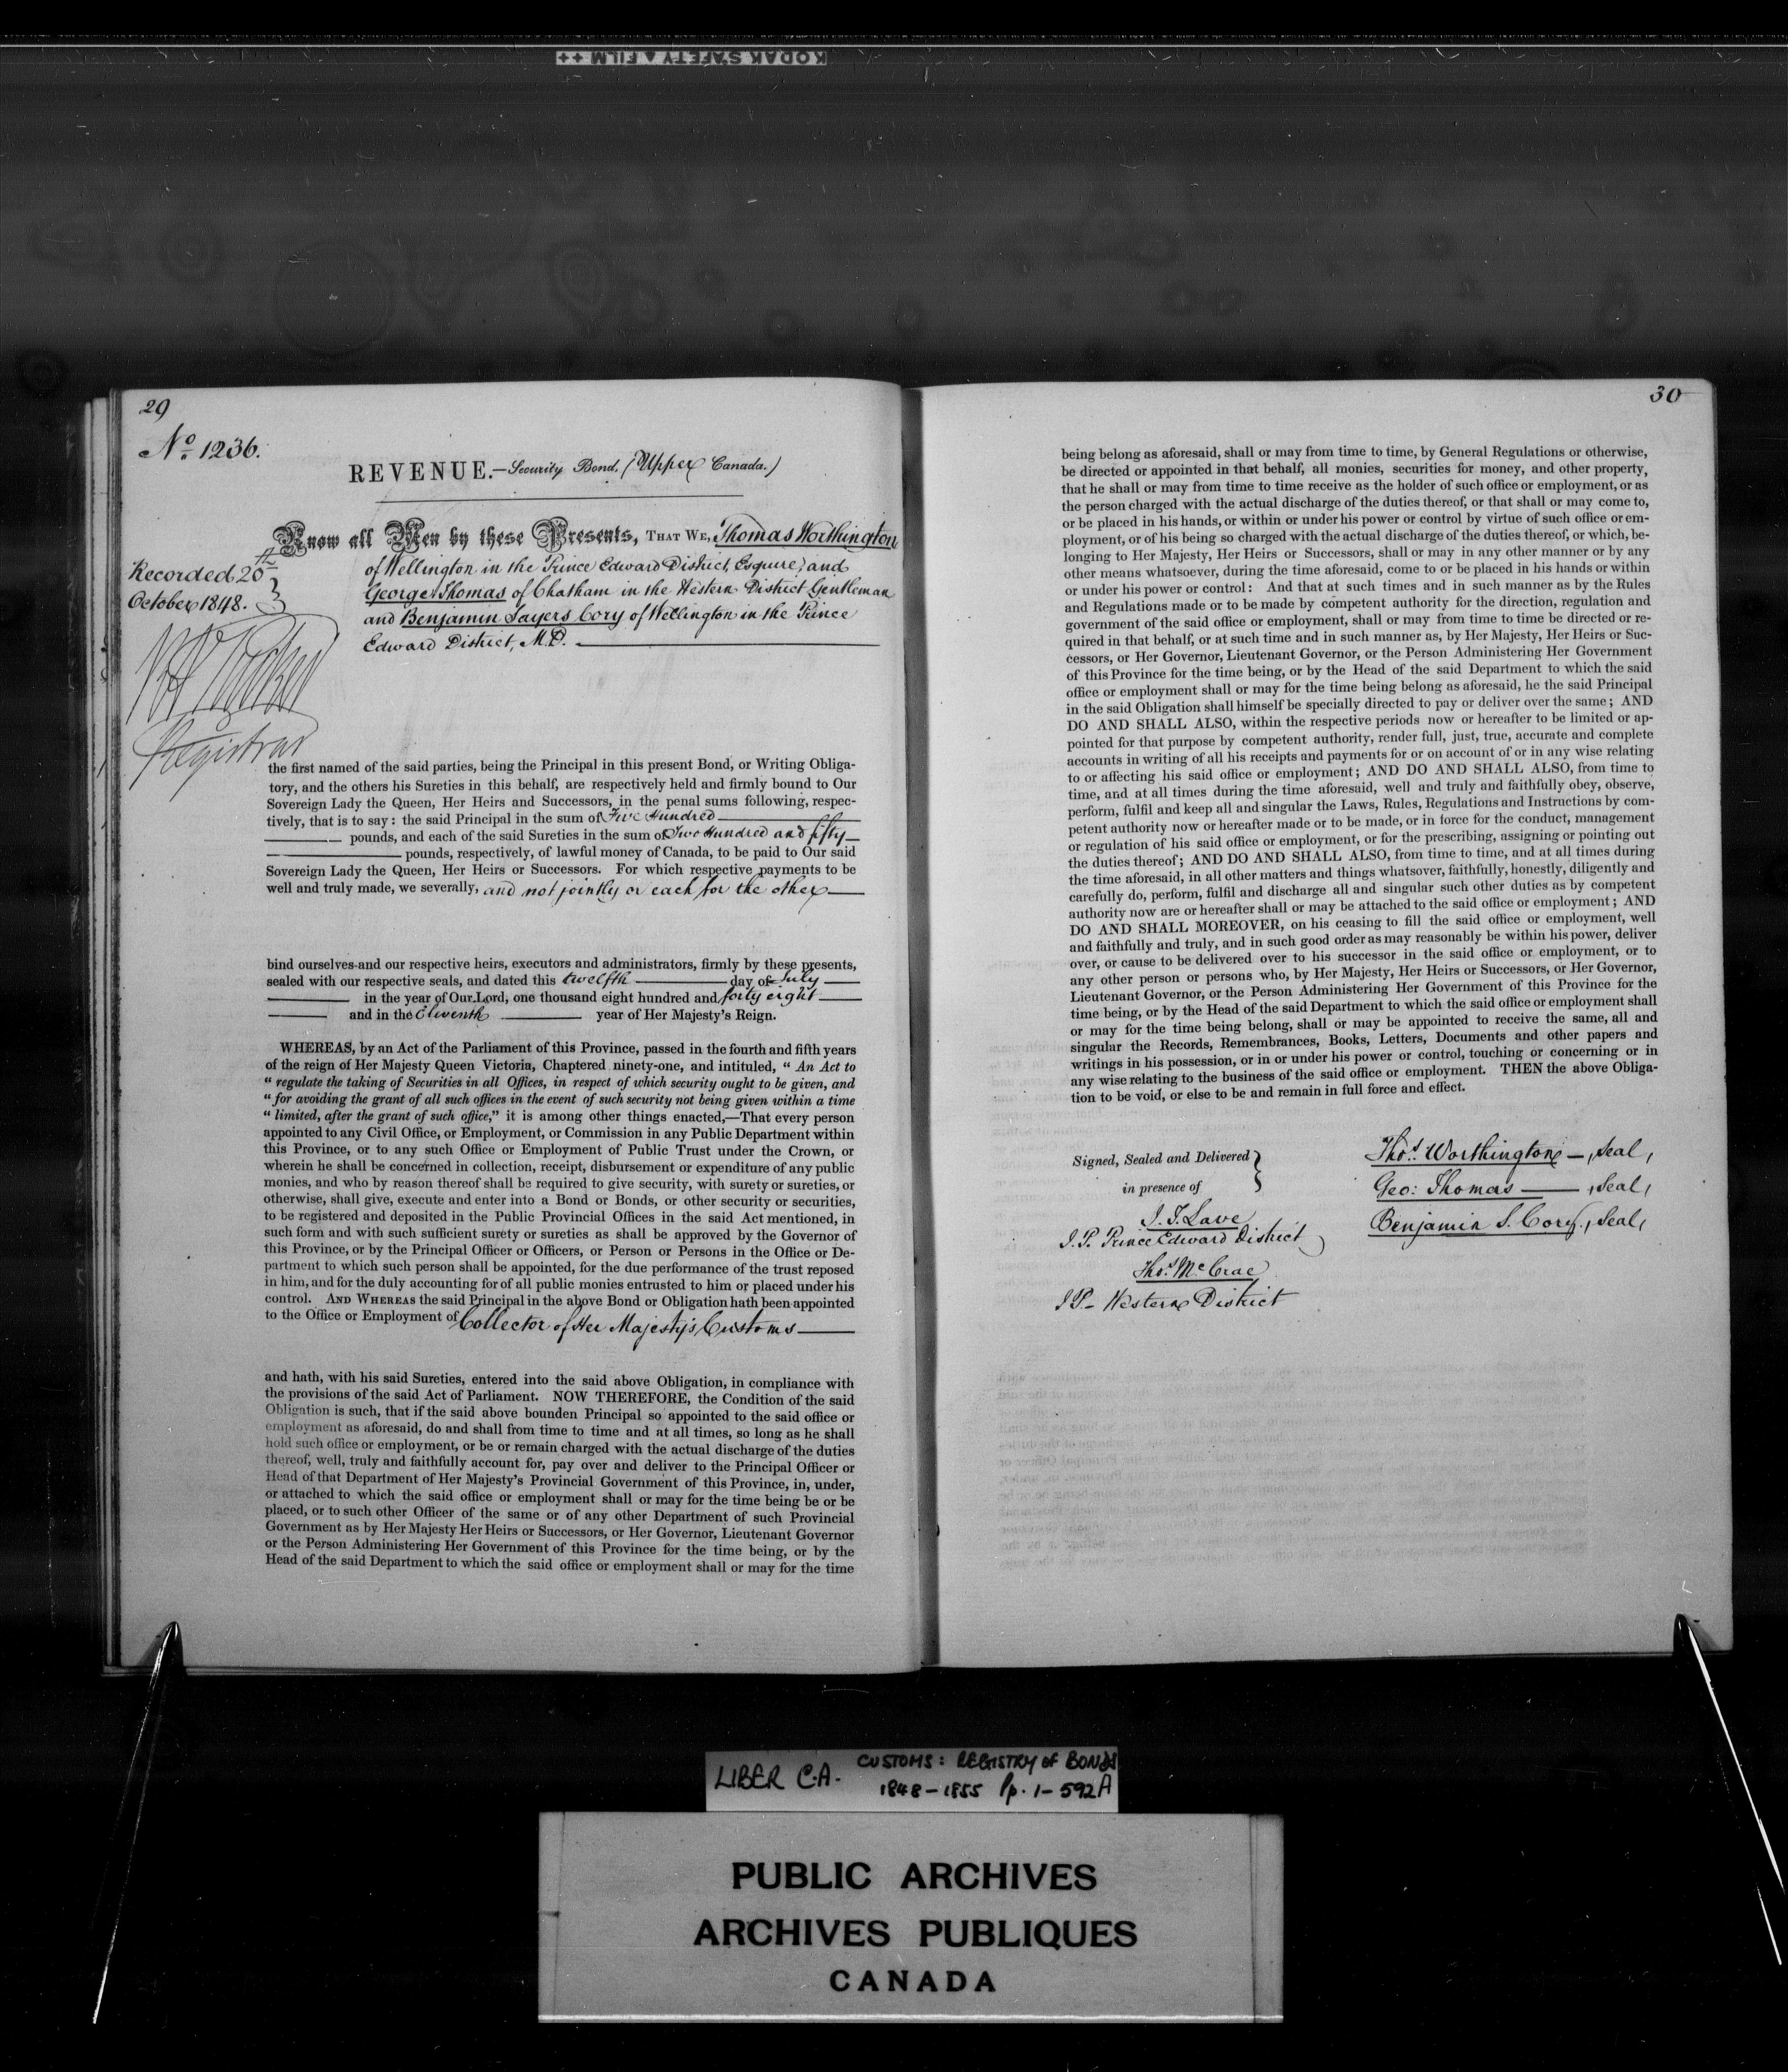 KODAK SAFETY A FILM ++
29
No 1236.
REVENUE.—Security Bond. (Upper Canada.)
Know all Men by these Presents, THAT WE, Thomas Worthington
of Wellington in the Prince Edward District, Esquire, and
George Thomas of Chatham in the Western District Gentleman
and Benjamin Sayers Cory of Wellington in the Prince
Edward District, M.D.
Recorded 20th
October 1848.
Registrar
the first named of the said parties, being the Principal in this present Bond, or Writing Obliga-
tory, and the others his Sureties in this behalf, are respectively held and firmly bound to Our
Sovereign Lady the Queen, Her Heirs and Successors, in the penal sums following, respec-
tively, that is to say: the said Principal in the sum of Five Hundred
pounds, and each of the said Sureties in the sum of Two Hundred and fifty
pounds, respectively, of lawful money of Canada, to be paid to Our said
Sovereign Lady the Queen, Her Heirs or Successors. For which respective payments to be
well and truly made, we severally, and not jointly or each for the other
bind ourselves and our respective heirs, executors and administrators, firmly by these presents,
sealed with our respective seals, and dated this twelfth day of July
in the year of Our Lord, one thousand eight hundred and forty eight
and in the Eleventh year of Her Majesty's Reign.
WHEREAS, by an Act of the Parliament of this Province, passed in the fourth and fifth years
of the reign of Her Majesty Queen Victoria, Chaptered ninety-one, and intituled, " An Act to
" regulate the taking of Securities in all Offices, in respect of which security ought to be given, and
" for avoiding the grant of all such offices in the event of such security not being given within a time
" limited, after the grant of such office," it is among other things enacted,—That every person
appointed to any Civil Office, or Employment, or Commission in any Public Department within
this Province, or to any such Office or Employment of Public Trust under the Crown, or
wherein he shall be concerned in collection, receipt, disbursement or expenditure of any public
monies, and who by reason thereof shall be required to give security, with surety or sureties, or
otherwise, shall give, execute and enter into a Bond or Bonds, or other security or securities,
to be registered and deposited in the Public Provincial Offices in the said Act mentioned, in
such form and with such sufficient surety or sureties as shall be approved by the Governor of
this Province, or by the Principal Officer or Officers, or Person or Persons in the Office or De-
partment to which such person shall be appointed, for the due performance of the trust reposed
in him, and for the duly accounting for of all public monies entrusted to him or placed under his
control. AND WHEREAS the said Principal in the above Bond or Obligation hath been appointed
to the Office or Employment of Collector of Her Majesty's Customs
and hath, with his said Sureties, entered into the said above Obligation, in compliance with
the provisions of the said Act of Parliament. NOW THEREFORE, the Condition of the said
Obligation is such, that if the said above bounden Principal so appointed to the said office or
employment as aforesaid, do and shall from time to time and at all times, so long as he shall
hold such office or employment, or be or remain charged with the actual discharge of the duties
thereof, well, truly and faithfully account for, pay over and deliver to the Principal Officer or
Head of that Department of Her Majesty's Provincial Government of this Province, in, under,
or attached to which the said office or employment shall or may for the time being be or be
placed, or to such other Officer of the same or of any other Department of such Provincial
Government as by Her Majesty Her Heirs or Successors, or Her Governor, Lieutenant Governor
or the Person Administering Her Government of this Province for the time being, or by the
Head of the said Department to which the said office or employment shall or may for the time
30
being belong as aforesaid, shall or may from time to time, by General Regulations or otherwise,
be directed or appointed in that behalf, all monies, securities for money, and other property,
that he shall or may from time to time receive as the holder of such office or employment, or as
the person charged with the actual discharge of the duties thereof, or that shall or may come to,
or be placed in his hands, or within or under his power or control by virtue of such office or em-
ployment, or of his being so charged with the actual discharge of the duties thereof, or which, be-
longing to Her Majesty, Her Heirs or Successors, shall or may in any other manner or by any
other means whatsoever, during the time aforesaid, come to or be placed in his hands or within
or under his power or control: And that at such times and in such manner as by the Rules
and Regulations made or to be made by competent authority for the direction, regulation and
government of the said office or employment, shall or may from time to time be directed or re-
quired in that behalf, or at such time and in such manner as, by Her Majesty, Her Heirs or Suc-
cessors, or Her Governor, Lieutenant Governor, or the Person Administering Her Government
of this Province for the time being, or by the Head of the said Department to which the said
office or employment shall or may for the time being belong as aforesaid, he the said Principal
in the said Obligation shall himself be specially directed to pay or deliver over the same; AND
DO AND SHALL ALSO, within the respective periods now or hereafter to be limited or ap-
pointed for that purpose by competent authority, render full, just, true, accurate and complete
accounts in writing of all his receipts and payments for or on account of or in any wise relating
to or affecting his said office or employment; AND DO AND SHALL ALSO, from time to
time, and at all times during the time aforesaid, well and truly and faithfully obey, observe,
perform, fulfil and keep all and singular the Laws, Rules, Regulations and Instructions by com-
petent authority now or hereafter made or to be made, or in force for the conduct, management
or regulation of his said office or employment, or for the prescribing, assigning or pointing out
the duties thereof; AND DO AND SHALL ALSO, from time to time, and at all times during
the time aforesaid, in all other matters and things whatsover, faithfully, honestly, diligently and
carefully do, perform, fulfil and discharge all and singular such other duties as by competent
authority now are or hereafter shall or may be attached to the said office or employment; AND
DO AND SHALL MOREOVER, on his ceasing to fill the said office or employment, well
and faithfully and truly, and in such good order as may reasonably be within his power, deliver
over, or cause to be delivered over to his successor in the said office or employment, or to
any other person or persons who, by Her Majesty, Her Heirs or Successors, or Her Governor,
Lieutenant Governor, or the Person Administering Her Government of this Province for the
time being, or by the Head of the said Department to which the said office or employment shall
or may for the time being belong, shall or may be appointed to receive the same, all and
singular the Records, Remembrances, Books, Letters, Documents and other papers and
writings in his possession, or in or under his power or control, touching or concerning or in
any wise relating to the business of the said office or employment. THEN the above Obliga-
tion to be void, or else to be and remain in full force and effect.
Signed, Sealed and Delivered
in presence of
J. T. Lave
J.P. Prince Edward District
Thos. McCrae
JP- Western District
Thos. Worthington —, Seal,
Geo: Thomas —, Seal,
Benjamin S. Cory, Seal,
LIBER C.A. CUSTOMS: REGISTRY OF BONDS
1848-1855 Pp. 1-592A
PUBLIC ARCHIVES
ARCHIVES PUBLIQUES
CANADA